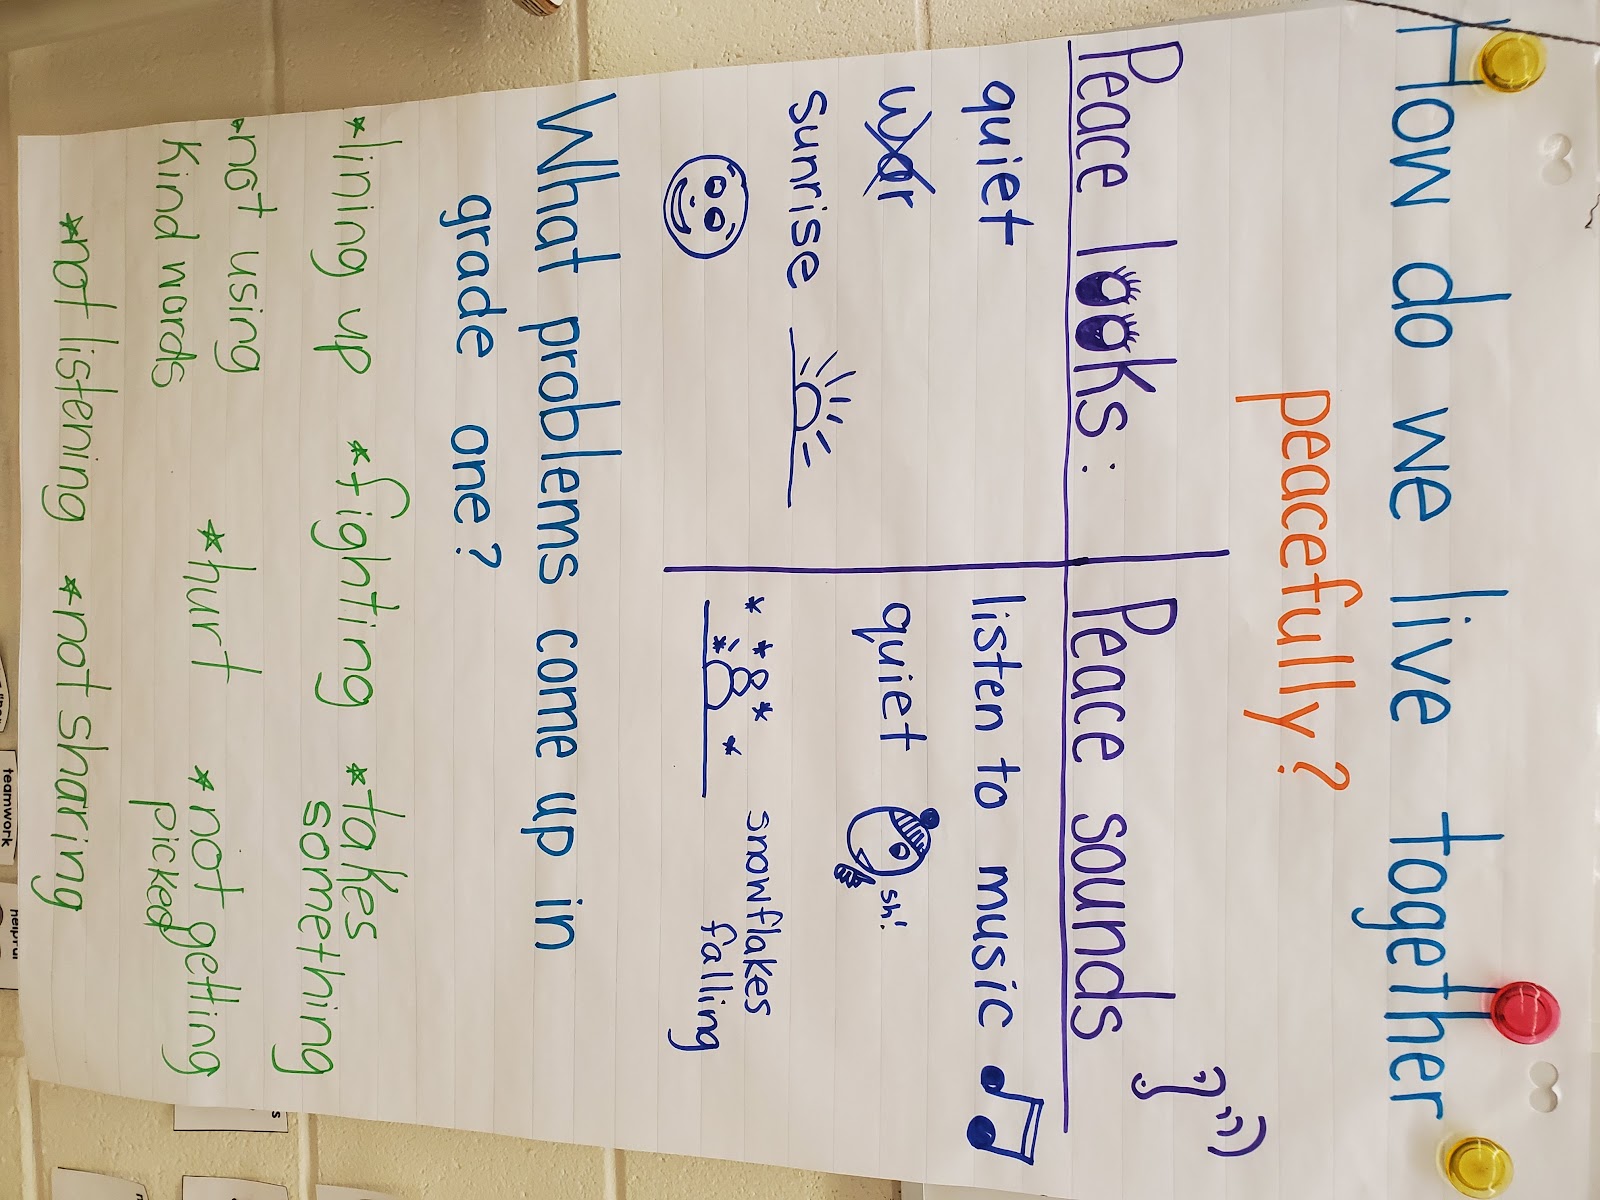 How do we live together
peacefully?
Peace looks:
quiet
war
sunrise
Peace sounds
listen to music
quiet
sh!
snowflakes
falling
What problems come up in
grade one?
*lining up *fighting *takes
something
*not using
kind words
*hurt *not getting
picked
*not listening *not sharing
teamwork
helpful